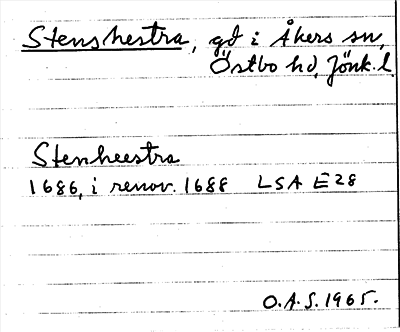 Stenshestra, gd i Åkers sn,
Östbo hd, Jönk. l.
Stenheestra
1686, i renov. 1688 LSA E28
O.A.S. 1965.